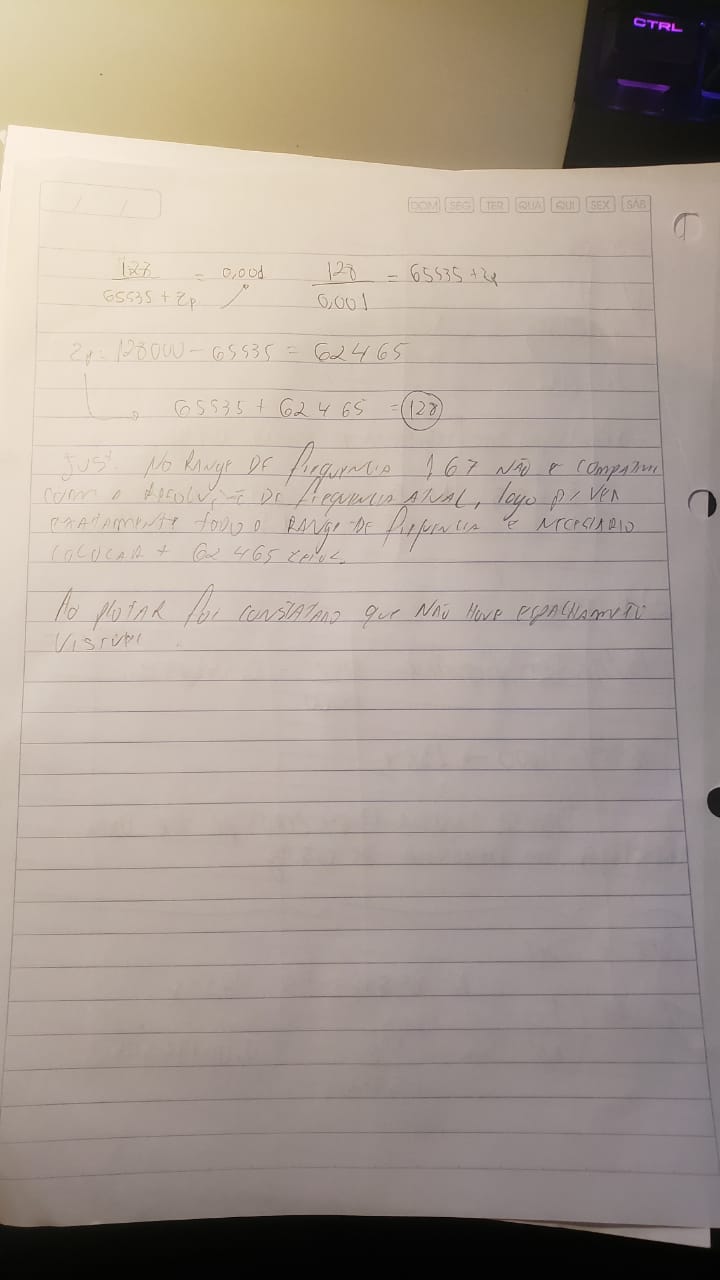 CTRL
DOM SEG TER QUA QUI SEX SÁB
128 / 65535 + Zp = 0,001 128 / 0,001 = 65535 + Zp
Zp = 128000 - 65535 = 62465
65535 + 62465 = 128
Just. No RANGE DE frequencia 1,67 NÃO e
com a DE frequencia ATUAL, logo p/ VER
EXATAMENTE todo o RANGE DE frequencia e NECESSARIO
COLOCAR + 62465 zeros.
Ao plotar foi CONSTATADO que NÃO HOVE
VISIVEL.